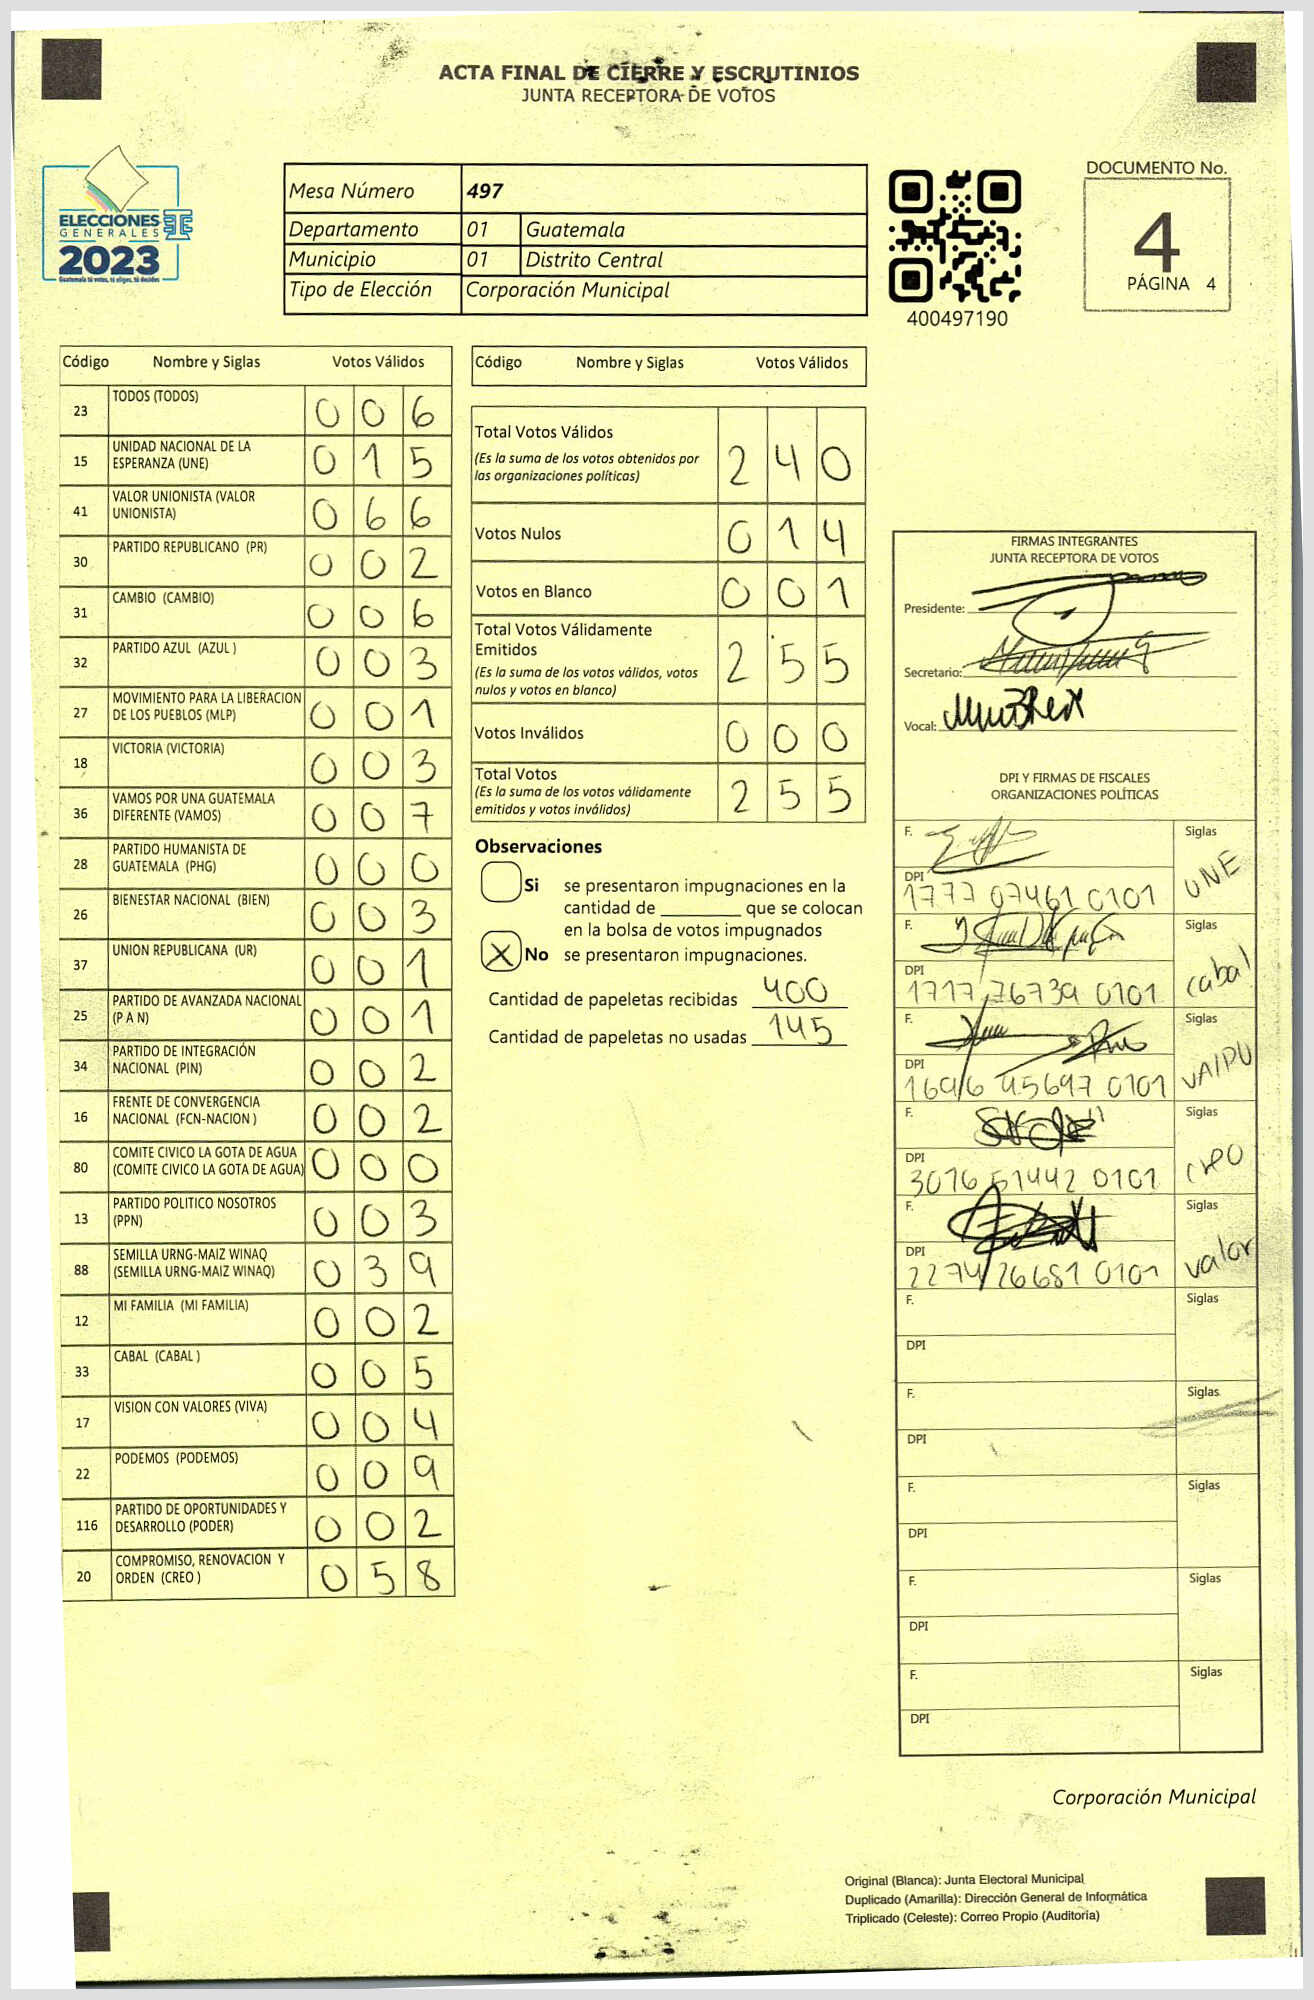 ACTA FINAL DE CIERRE Y ESCRUTINIOS
JUNTA RECEPTORA DE VOTOS
ELECCIONES
GENERALES
2023
Guatemala tú votas, tú eliges, tú decides
Mesa Número 497
Departamento 01 Guatemala
Municipio 01 Distrito Central
Tipo de Elección Corporación Municipal
400497190
DOCUMENTO No.
4
PÁGINA 4
Código Nombre y Siglas Votos Válidos
23 TODOS (TODOS) 0 0 6
15 UNIDAD NACIONAL DE LA ESPERANZA (UNE) 0 1 5
41 VALOR UNIONISTA (VALOR UNIONISTA) 0 6 6
30 PARTIDO REPUBLICANO (PR) 0 0 2
31 CAMBIO (CAMBIO) 0 0 6
32 PARTIDO AZUL (AZUL ) 0 0 3
27 MOVIMIENTO PARA LA LIBERACION DE LOS PUEBLOS (MLP) 0 0 1
18 VICTORIA (VICTORIA) 0 0 3
36 VAMOS POR UNA GUATEMALA DIFERENTE (VAMOS) 0 0 7
28 PARTIDO HUMANISTA DE GUATEMALA (PHG) 0 0 0
26 BIENESTAR NACIONAL (BIEN) 0 0 3
37 UNION REPUBLICANA (UR) 0 0 1
25 PARTIDO DE AVANZADA NACIONAL (P A N) 0 0 1
34 PARTIDO DE INTEGRACIÓN NACIONAL (PIN) 0 0 2
16 FRENTE DE CONVERGENCIA NACIONAL (FCN-NACION ) 0 0 2
80 COMITE CIVICO LA GOTA DE AGUA (COMITE CIVICO LA GOTA DE AGUA) 0 0 0
13 PARTIDO POLITICO NOSOTROS (PPN) 0 0 3
88 SEMILLA URNG-MAIZ WINAQ (SEMILLA URNG-MAIZ WINAQ) 0 3 9
12 MI FAMILIA (MI FAMILIA) 0 0 2
33 CABAL (CABAL ) 0 0 5
17 VISION CON VALORES (VIVA) 0 0 4
22 PODEMOS (PODEMOS) 0 0 9
116 PARTIDO DE OPORTUNIDADES Y DESARROLLO (PODER) 0 0 2
20 COMPROMISO, RENOVACION Y ORDEN (CREO ) 0 5 8
Código Nombre y Siglas Votos Válidos
Total Votos Válidos 2 4 0
(Es la suma de los votos obtenidos por
las organizaciones políticas)
Votos Nulos 0 1 4
Votos en Blanco 0 0 1
Total Votos Válidamente
Emitidos 2 5 5
(Es la suma de los votos válidos, votos
nulos y votos en blanco)
Votos Inválidos 0 0 0
Total Votos 2 5 5
(Es la suma de los votos válidamente
emitidos y votos inválidos)
Observaciones
Si se presentaron impugnaciones en la
cantidad de ________ que se colocan
en la bolsa de votos impugnados
X No se presentaron impugnaciones.
Cantidad de papeletas recibidas 400
Cantidad de papeletas no usadas 145
FIRMAS INTEGRANTES
JUNTA RECEPTORA DE VOTOS
Presidente:
Secretario:
Vocal:
DPI Y FIRMAS DE FISCALES
ORGANIZACIONES POLÍTICAS
F. Siglas UNE
DPI 1777 07461 0101
F. Siglas cabal
DPI 1717 76739 0101
F. Siglas
DPI 1696 45697 0101
F. Siglas creo
DPI 3016 51442 0101
F. Siglas valor
DPI 2274 26681 0101
F. Siglas
DPI
F. Siglas
DPI
F. Siglas
DPI
F. Siglas
DPI
F. Siglas
DPI
Corporación Municipal
Original (Blanca): Junta Electoral Municipal
Duplicado (Amarilla): Dirección General de Informática
Triplicado (Celeste): Correo Propio (Auditoría)